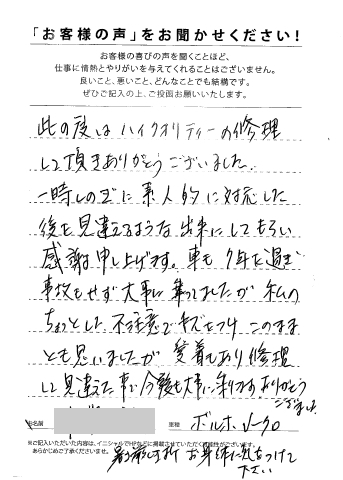 「お客様の声」をお聞かせください！
お客様の喜びの声を聞くことほど、
仕事に情熱とやりがいを与えてくれることはございません。
良いこと、悪いこと、どんなことでも結構です。
ぜひご記入の上、ご投函お願いいたします。
此の度はハイクオリティーの修理
して頂きありがとうございました。
一時しのぎに素人的に対応した
後を見違えるような出来にしてもらい
感謝申し上げます。車も7年を過ぎ
事故もせず大事に乗ってましたが私の
ちょっとした不注意でキズをつけこのまま
とも思いましたが愛着もあり修理
して見違えた事で今後も大事に乗ります ありがとう
ございました
お名前
車種 ボルボ
※ご記入いただいた内容は、イニシャルでHPなどに掲載させていただく可能性がございます。
あらかじめご了承くださいませ。
お身体に気をつけて
下さい